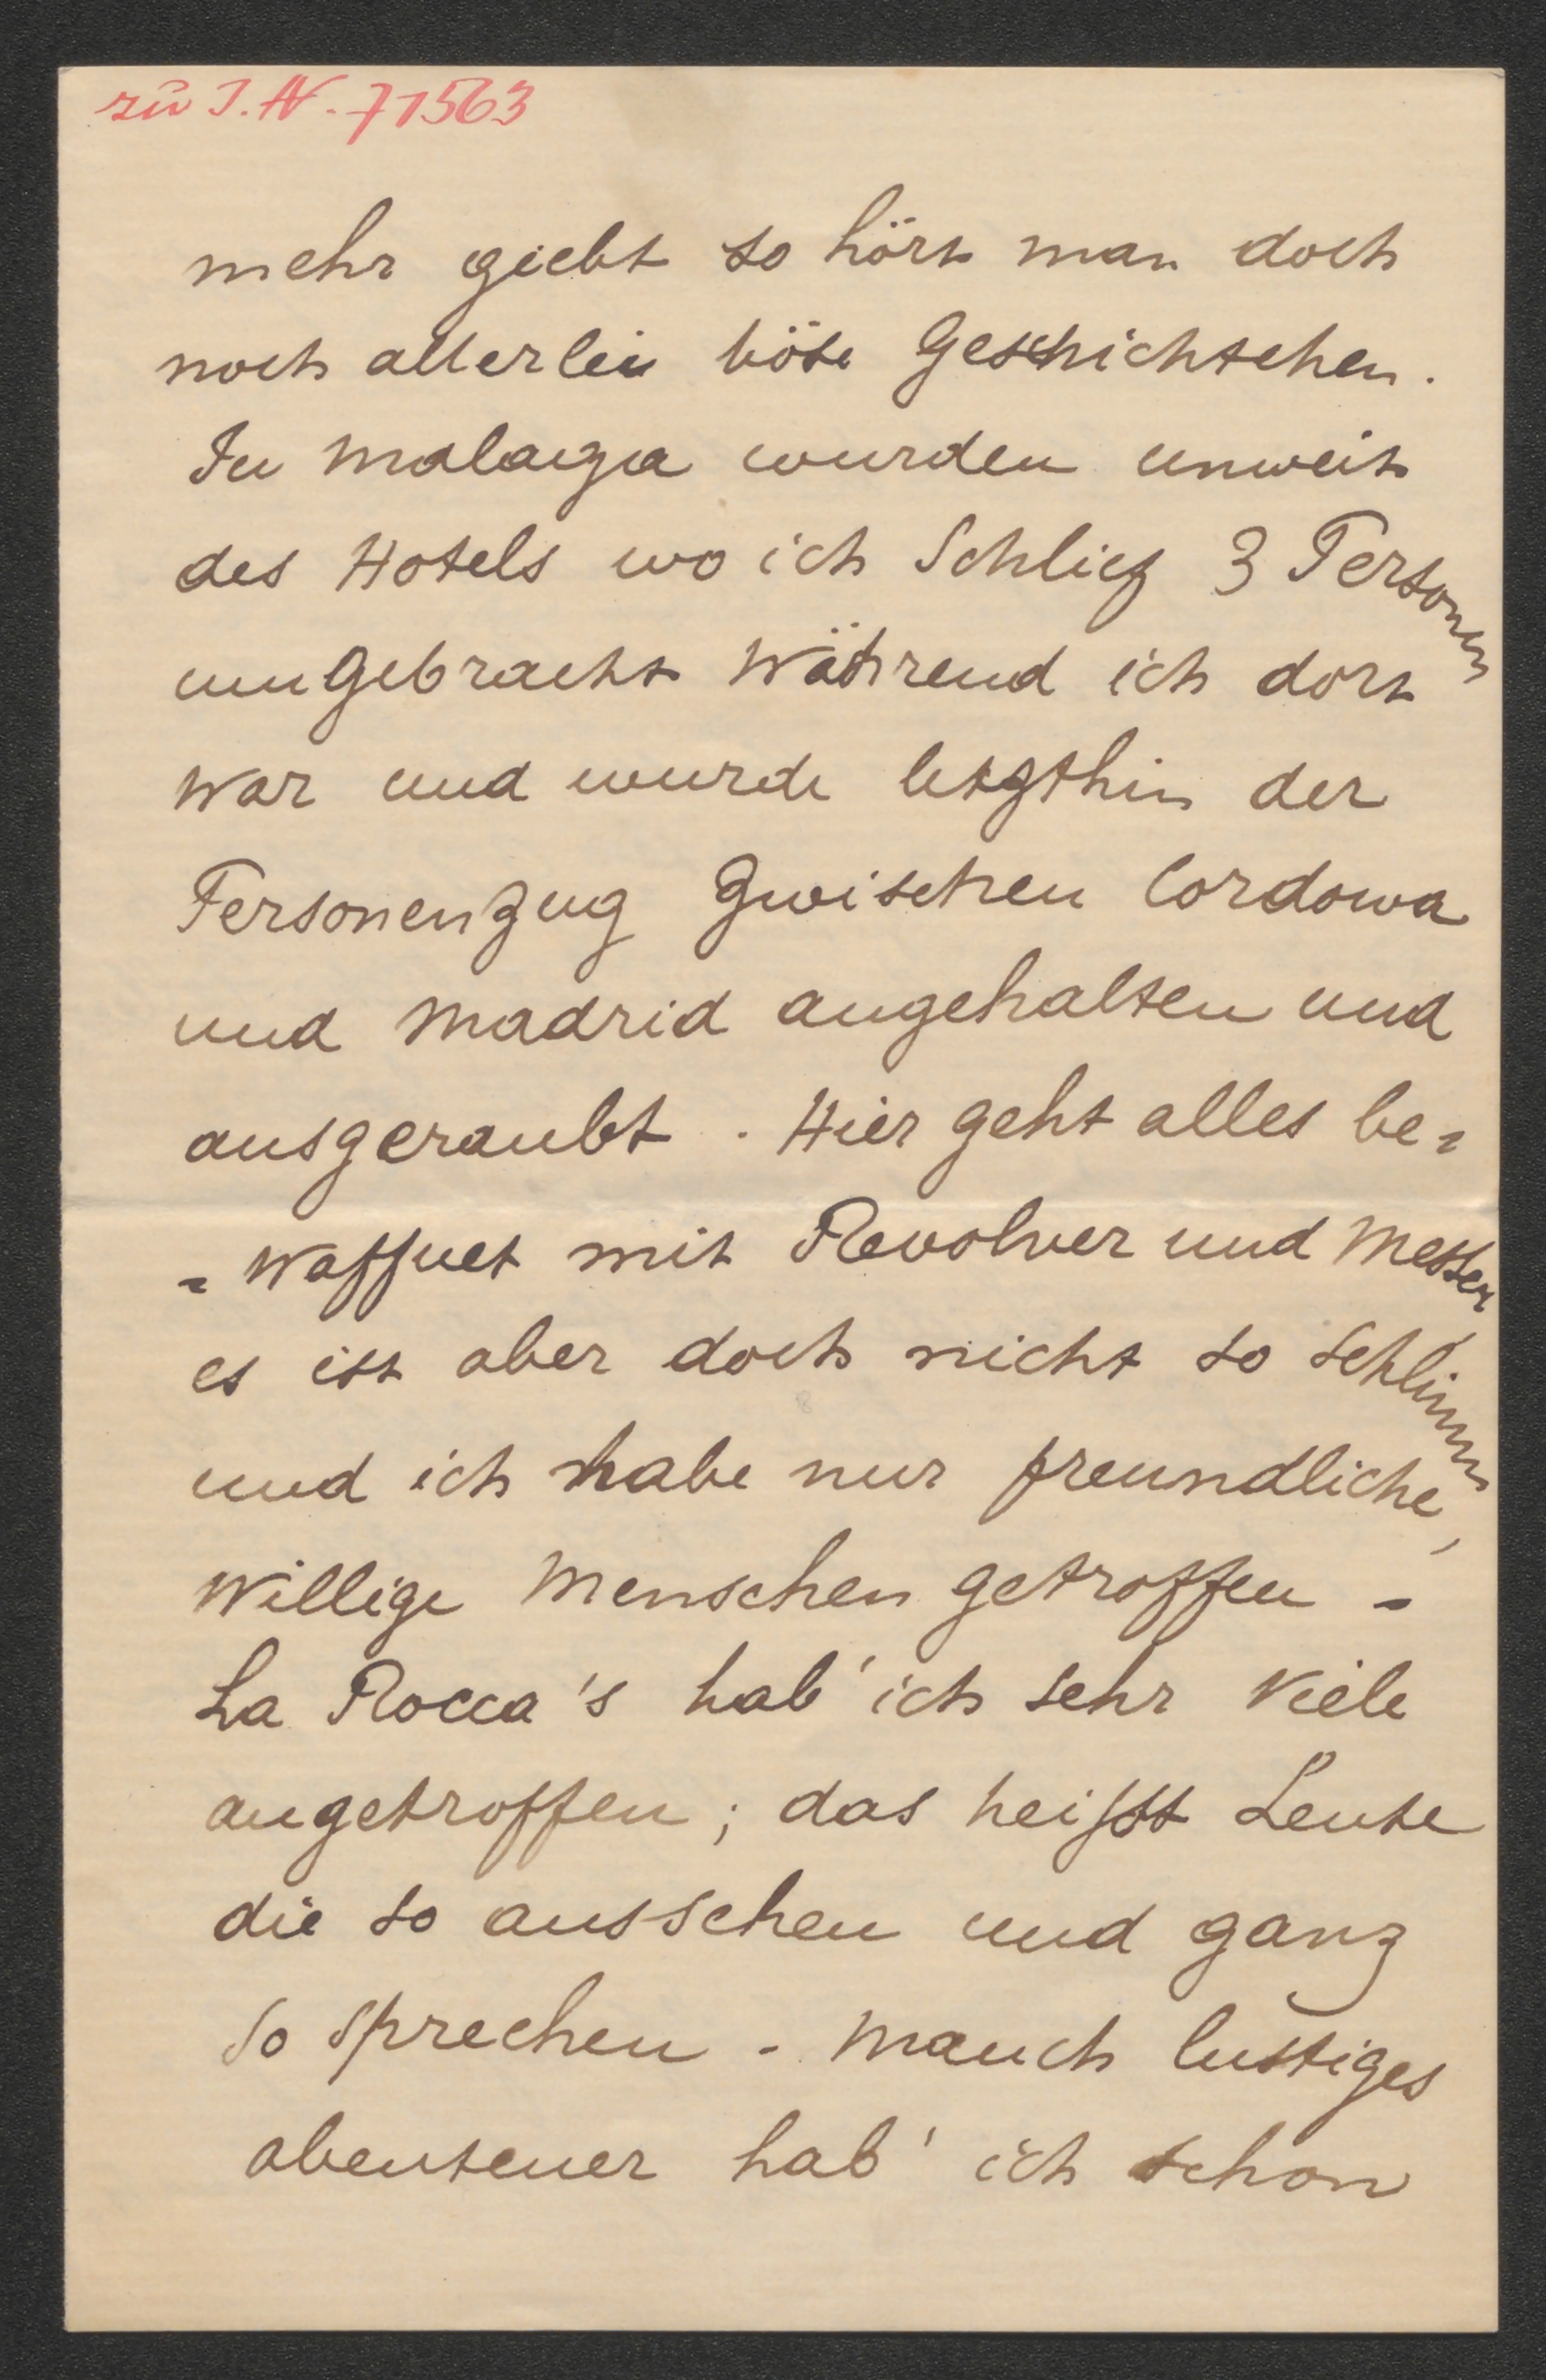 zu J. N. 71563
mehr giebt so hört man doch
noch allerlei böse Geschichtchen.
In Malaga wurden unweit
des Hotels wo ich Schlief 3 Personen
umgebracht Während ich dort
War und wurde letzthin der
Personenzug Zwischen Cordowa
und Madrid angehalten und
ausgeraubt. Hier geht alles be=
=Waffnet mit Revolver und Messer
es ist aber doch nicht so schlimm
und ich habe nur freundliche,
Willige Menschen getroffen -
La Rocca's hab' ich sehr Viele
angetroffen; das heisst Leute
die so aussehen und ganz
so sprechen - Manch lustiges
abenteuer hab' ich schon